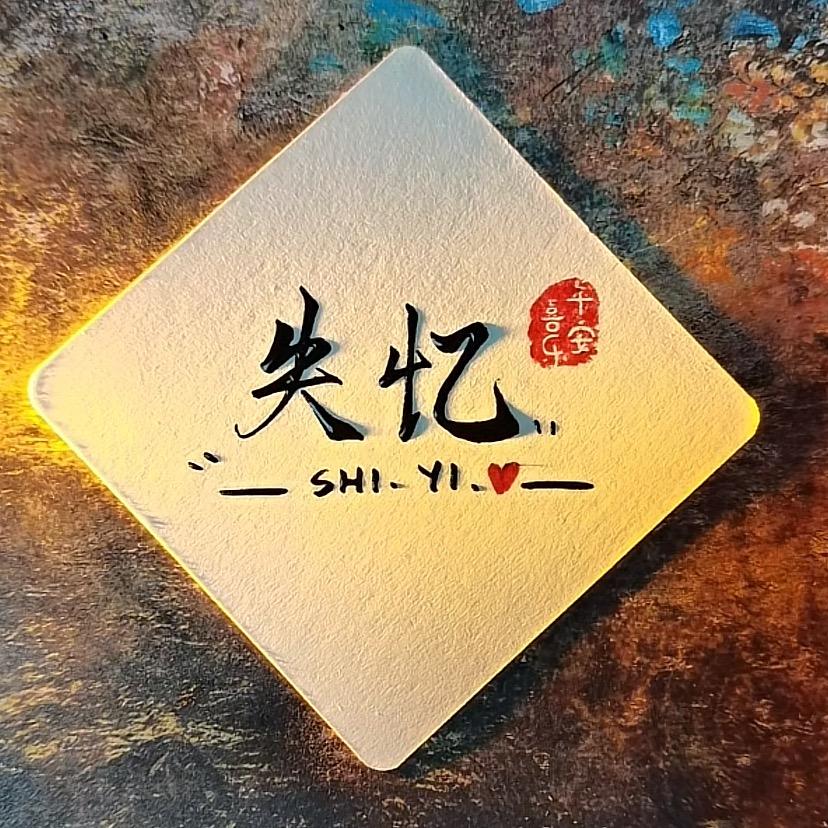 失忆
平安
喜乐
"— SHI.YI.♥—"